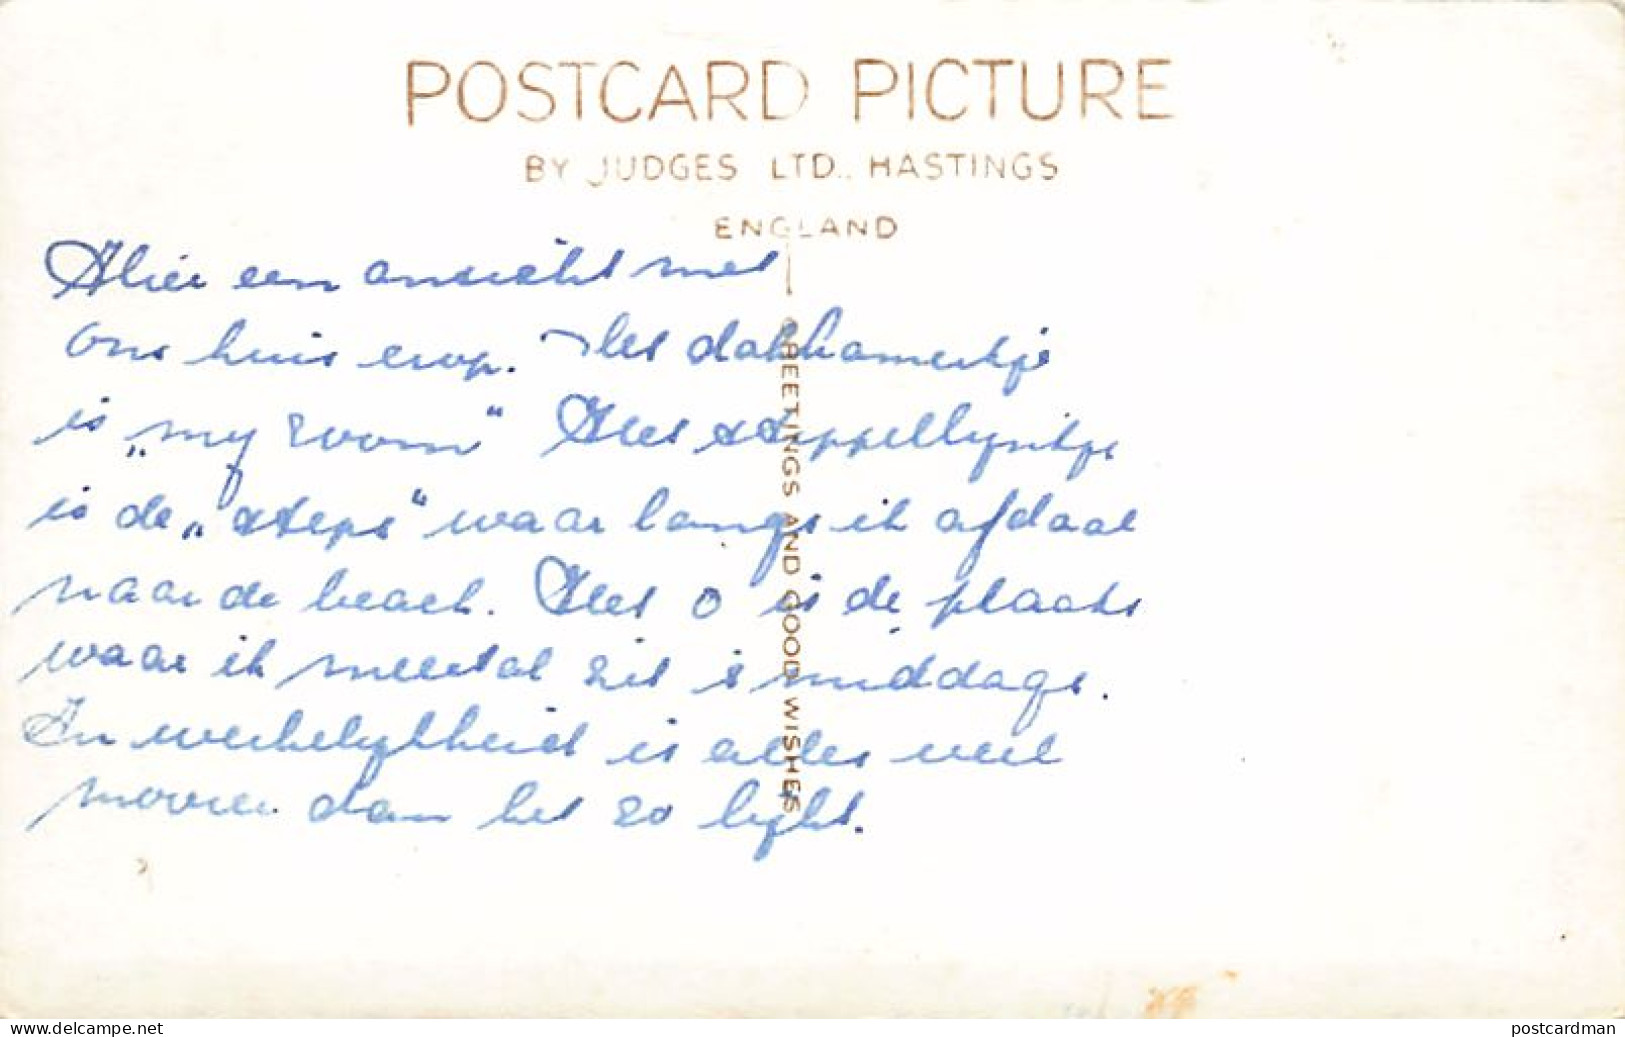 POSTCARD PICTURE
BY JUDGES LTD., HASTINGS
ENGLAND
GREETINGS AND GOOD WISHES
Hier een ansicht met
ons huis erop. Het dakkamertje
is „my room" Het stippellyntje
is de „steps" waar langs ik afdaal
naar de beach. Het o is de plaats
waar ik meestal zit 's middags.
In werkelykheid is alles veel
mooier dan het zo lykt.
www.delcampe.net
postcardman